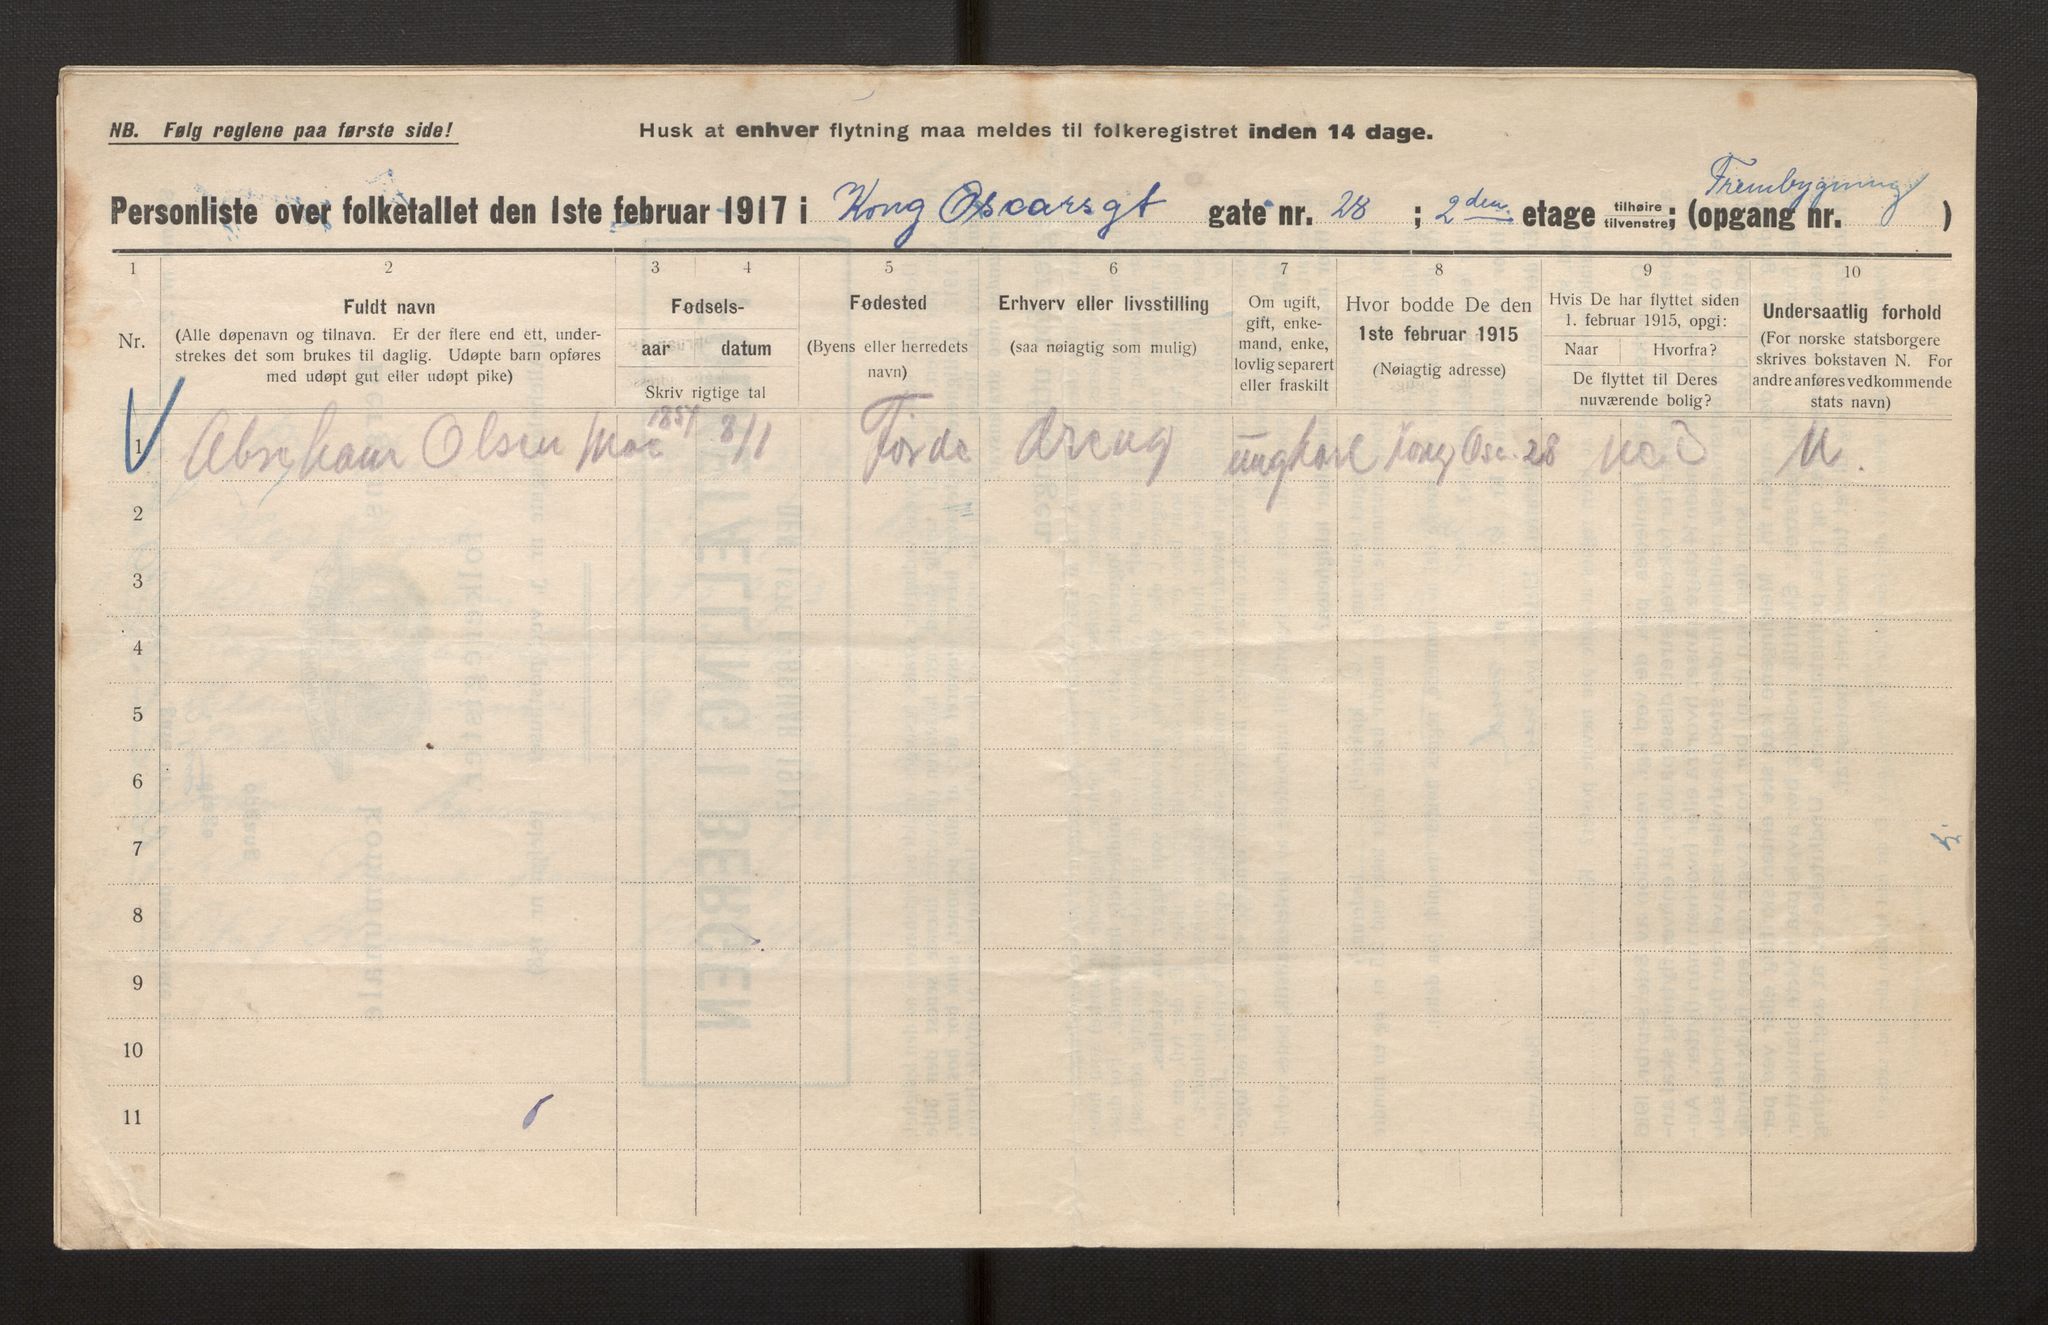 NB. Følg reglene paa første side!
Husk at enhver flytning maa meldes til folkeregistret inden 14 dage.
Frembygning
Personliste over folketallet den 1ste februar 1917 i Kong Oscarsgt gate nr. 28 ; 2 den etage tilhøire tilvenstre ; (opgang nr. )
1 2 3 4 5 6 7 8 9 10
Nr.
Fuldt navn
(Alle døpenavn og tilnavn. Er der flere end ett, under-
strekes det som brukes til daglig. Udøpte barn opføres
med udøpt gut eller udøpt pike)
Fødsels-
aar datum
Skriv rigtige tal
Fødested
(Byens eller herredets
navn)
Erhverv eller livsstilling
(saa nøiagtig som mulig)
Om ugift,
gift, enke-
mand, enke,
lovlig separert
eller fraskilt
Hvor bodde De den
1ste februar 1915
(Nøiagtig adresse)
Hvis De har flyttet siden
1. februar 1915, opgi:
Naar Hvorfra?
De flyttet til Deres
nuværende bolig?
Undersaatlig forhold
(For norske statsborgere
skrives bokstaven N. For
andre anføres vedkommende
stats navn)
1 Abraham Olsen Moe 1854 8/1 Förde dreng ungkarl Kong Osc. 28 N.
2
3
4
5
6
7
8
9
10
11